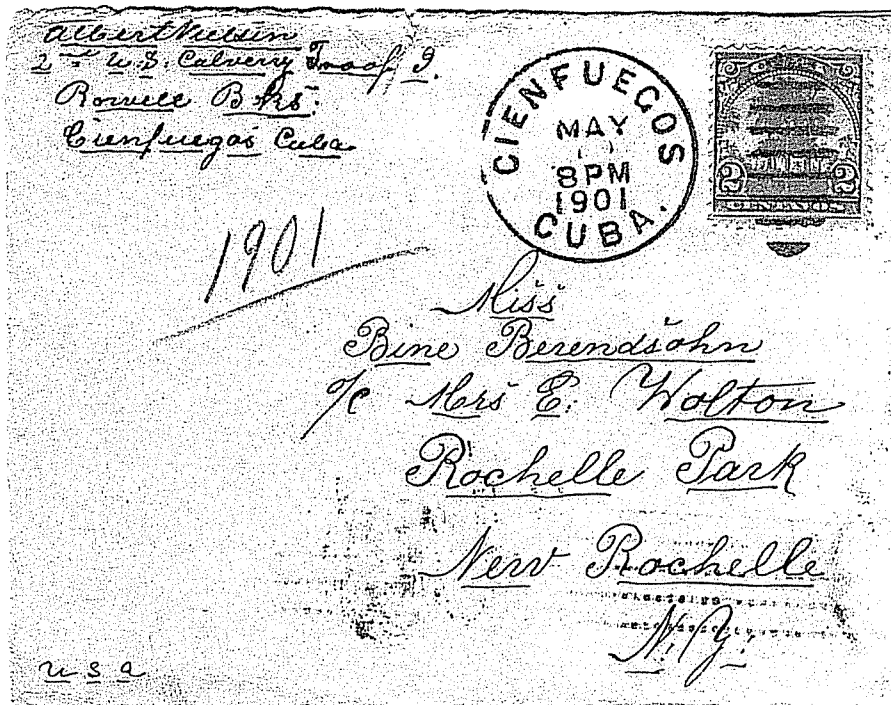 Albert
2nd U.S. Calvery Troop I.
Rowell B'ks.
Cienfuegos Cuba
CIENFUEGOS
MAY
8PM
1901
CUBA.
2 2
1901
Miss
Bine Berendsohn
c/o Mrs E. Wolton
Rochelle Park
New Rochelle
N.Y.
U S A